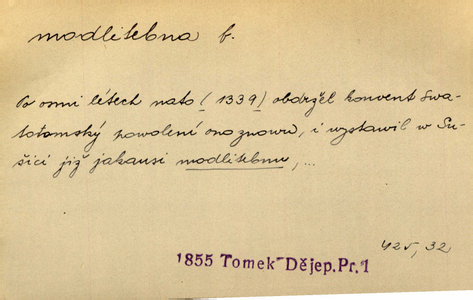 modlitebna f.
Po osmi létech nato (1339) obdržel konvent Swa-
totomský powolení ono znowu, i wystawil w Su-
šici již jakausi modlitebnu, ...
425, 32
1855 Tomek Dějep. Pr. 1